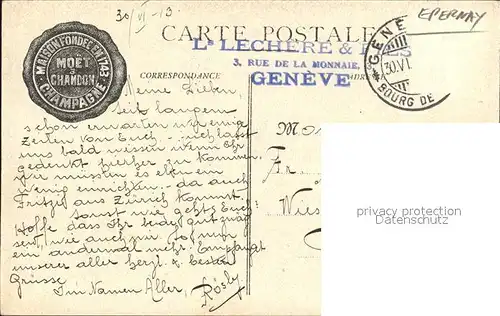 30/VI-13
EPERNAY
CARTE POSTALE
MAISON FONDÉE EN 1743
MOËT & CHANDON
CHAMPAGNE
Ls LECHÈRE & FILS
3, RUE DE LA MONNAIE,
GENÈVE
CORRESPONDANCE
GENÈ
30.VI.
BOURG DE
Meine Lieben,
Seit langem
schon erwarten wir einige
Zeilen von Euch. Lasst
uns bald wissen wenn Ihr
gedenkt hierher zu kommen,
wir müssten es eben ein
wenig einrichten, da auch
Fritzi aus Zürich kommt.
Sonst wie geht's Euch?
Hoffe dass Ihr beide gut zuwege
seid, wie auch wir. So für
ein andermal mehr. Empfangt
unserer aller herzl. & besten
Grüsse
Im Namen Aller, Rösly
Fr.
Wies
privacy protection
Datenschutz